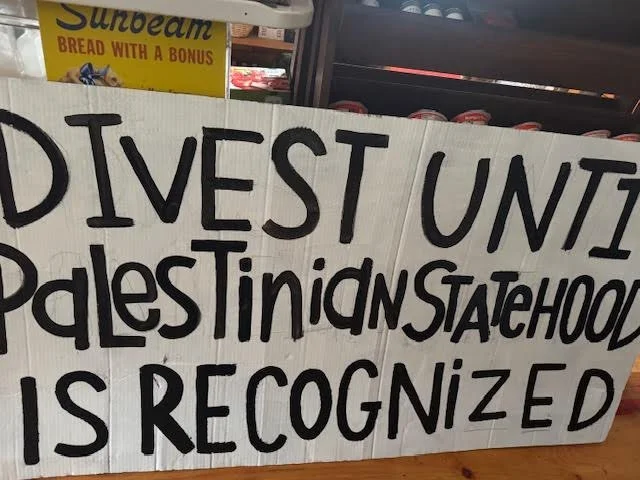 Sunbeam
BREAD WITH A BONUS
DIVEST UNTI
PaLesTinianSTATeHOOD
IS RECOGNiZED